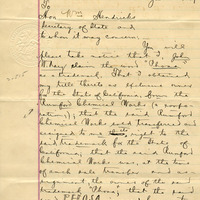 To
Hon Hendricks
Secretary of State and
to whom it may concern:
You will
please take notice that I, John
claim the word "Phosa"
as a trademark. That I obtained
my title thereto as follows
the State of California from the
Rumford Chemical Works (a corpora-
tion); that the said Rumford
Chemical Works sold transferred and
assigned to me their right to the
said trademark for the State of
California; that the said Rumford
Chemical Works was, at the time
of such sale transfer and as-
signment, the owner of the said
trademark "Phosa", that the said